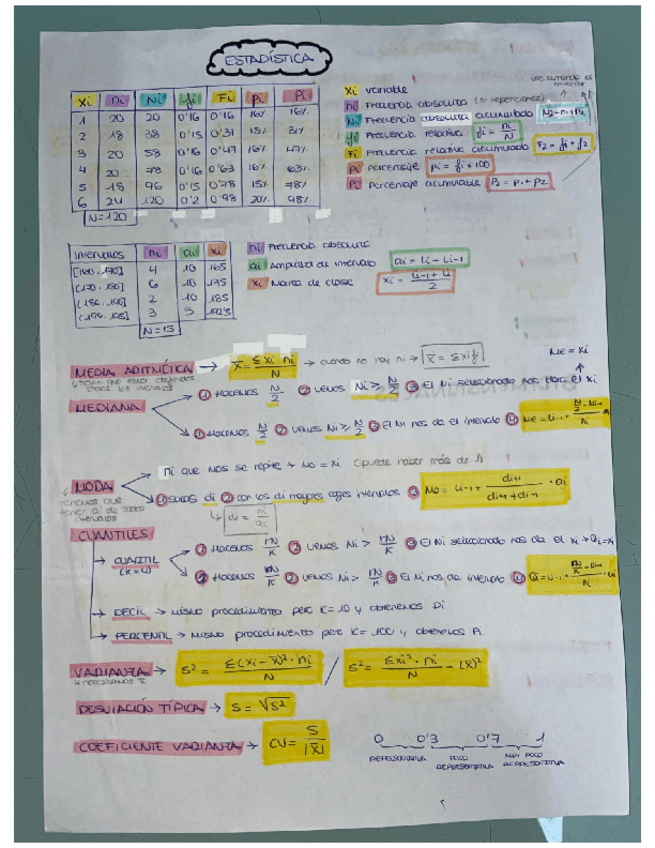 ESTADÍSTICA
Xi ni Ni fi Fi pi Pi
1 20 20 0'16 0'16 16% 16%
2 18 38 0'15 0'31 15% 31%
3 20 58 0'16 0'47 16% 47%
4 20 78 0'16 0'63 16% 63%
5 18 96 0'15 0'78 15% 78%
6 24 120 0'2 0'98 20% 98%
N=120
Xi variable
ni Frecuencia absoluta (ni repeticiones)
Ni Frecuencia absoluta acumulada
fi Frecuencia relativa fi = ni/N
Fi Frecuencia relativa acumulada F2 = f1 + f2
pi porcentaje pi = fi × 100
Pi Porcentaje acumulable P2 = p1 + p2
Intervalos ni ai xi
[160, 170] 4 10 165
(170, 180] 6 10 175
2 10 185
3 5
N=15
ni Frecuencia absoluta
ai Amplitud de intervalo ai = Li - Li-1
xi Marca de clase xi = (Li-1 + Li)/2
MEDIA ARITMÉTICA → x̄ = Σ xi ni / N → cuando no hay ni → x̄ = Σ xi fi
Me = xi
MEDIANA
① Hacemos N/2 ② vemos Ni ≥ N/2 ③ El Ni seleccionado nos dara el xi
① Hacemos N/2 ② vemos Ni ≥ N/2 ③ El Ni nos da el intervalo ④
MODA
ni que más se repite → Mo = xi (puede haber más de 1)
① sacas di ② con los di mayores coges intervalos ③ Mo = Li-1 + di+1 / (di-1 + di+1) · ai
di = ni/ai
CUANTILES
→ CUARTIL (K=4)
① Hacemos rN/K ② vemos Ni > rN/K ③ El Ni seleccionado nos da el xi → Qi = xi
① Hacemos rN/K ② vemos Ni > rN/K ③ El Ni nos da intervalo ④
→ DECIL → mismo procedimiento pero K=10 y obtenemos Di
→ PERCENTIL → mismo procedimiento pero K=100 y obtenemos Pi
VARIANZA → S² = Σ(xi - x̄)² · ni / N / S² = Σ xi² · ni / N - (x̄)²
DESVIACIÓN TÍPICA → S = √S²
COEFICIENTE VARIANZA → CV = S / |x̄|
0 0'3 0'7 1
REPRESENTATIVA POCO REPRESENTATIVA MUY POCO REPRESENTATIVA